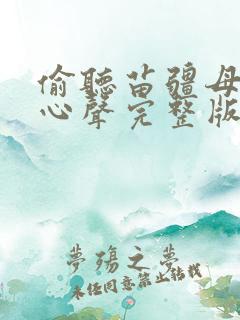 偷聽苗疆母
心聲完整版
夢殤之夢
未经同意禁止转载